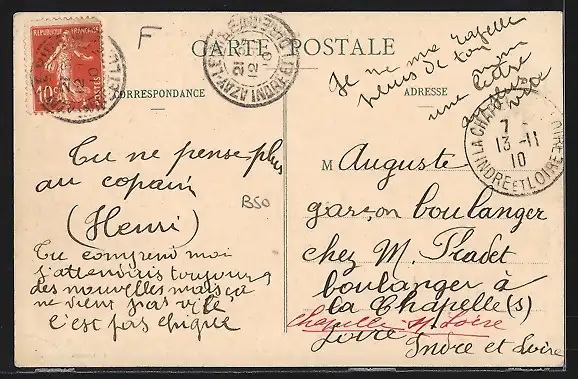 REPUBLIQUE FRANÇAISE
10c POSTES
F
CARTE POSTALE
CORRESPONDANCE
ADRESSE
Je ne me rapelle
plus de ton
une lettre
AZAY-LE-
21
12
10
LA CHAPELLE
7
13 -11
10
INDRE ET LOIRE
Tu ne pense plus
au copain
(Henri)
B50
Tu comprend moi
j'attendais toujours
des nouvelles mais ça
ne vient pas vite
c'est pas chique
M Auguste
garçon boulanger
chez M. Pradet
boulanger à
la Chapelle (s)
Chapelle s/ Loire
Loire Indre et Loire